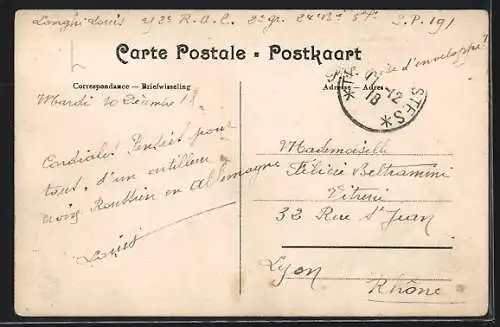 Longhi Louis 2/2e R.A.C. 2e gr. 24e Bie S.P. 191
Carte Postale - Postkaart
Correspondance — Briefwisseling
Adresse — Adres
d'enveloppe
11-12
18
*
STES *
Mardi 10 Décembre 18
Cordiales Pensées pour
tous. d'un artilleur
en Allemagne
Louis
Mademoiselle
Félicie Beltramini
Vitrerie
32 Rue St Jean
Lyon
Rhône